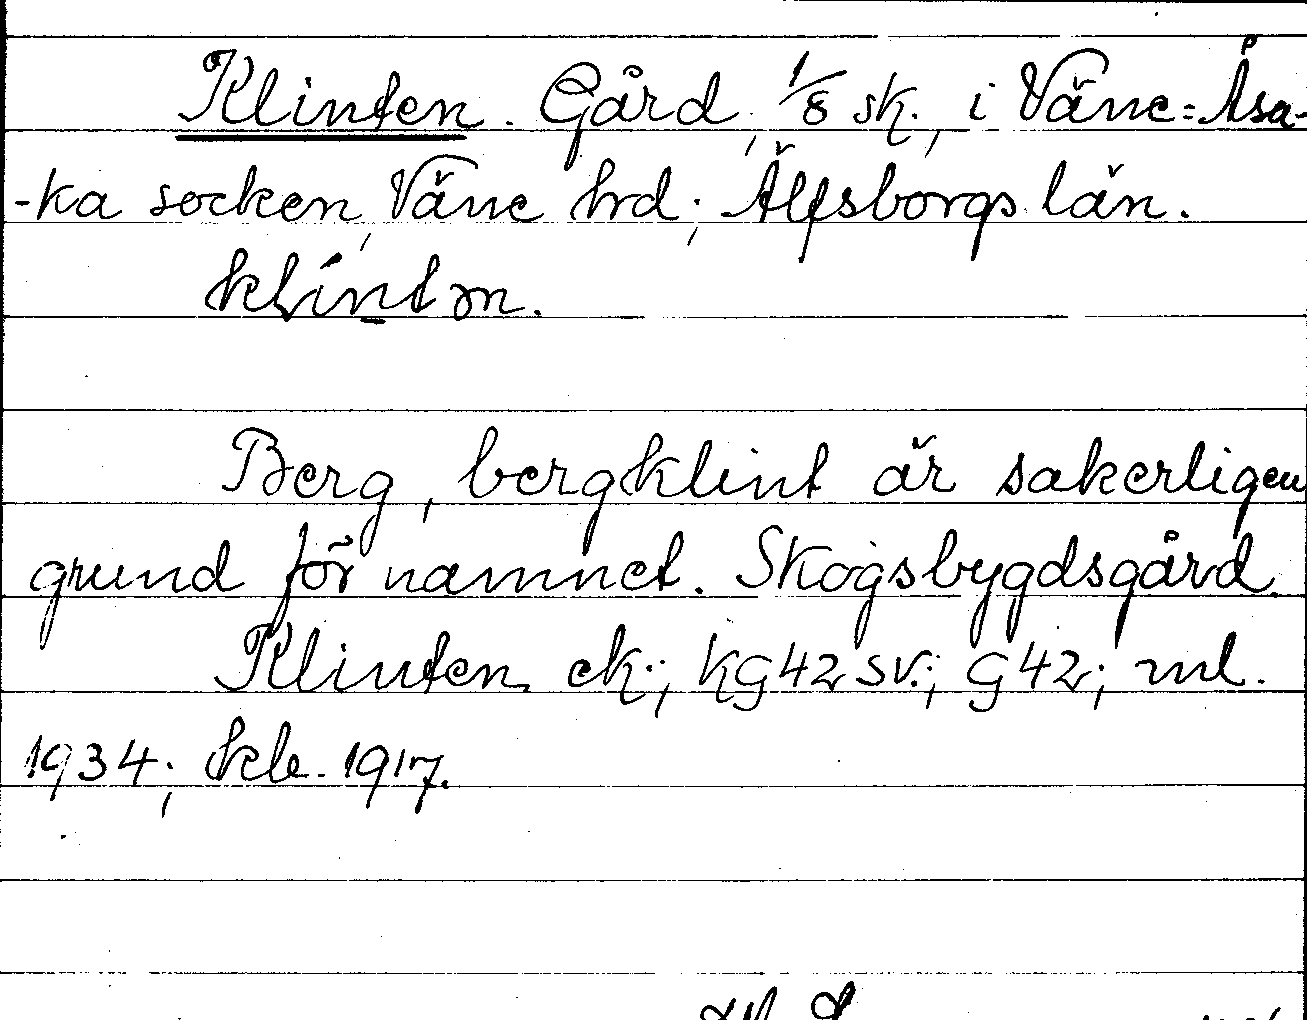 Klinten. Gård, 1/8 sk., i Väne=Åsa-
-ka socken, Väne hrd; Älfsborgs län.
klintən.
Berg, bergklint är sakerligen
grund för namnet. Skogsbygdsgård.
Klinten ek.; kg42sv.; g42; ml.
1934; kle. 1917.